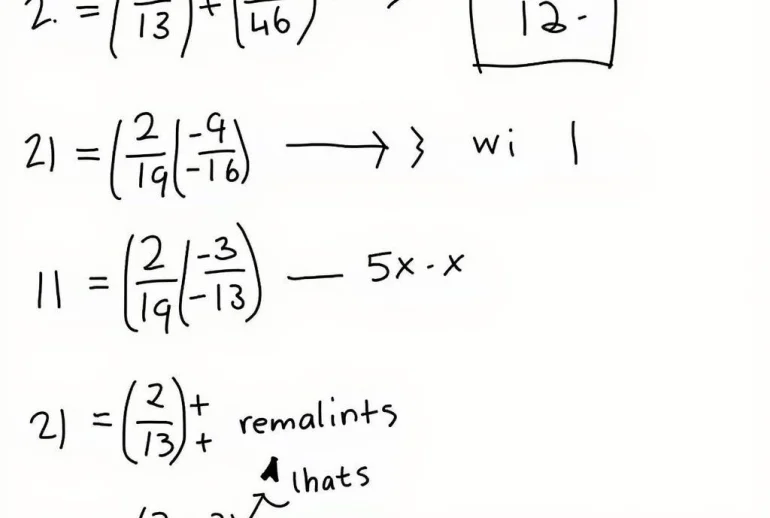 2. = ( /13) + ( /46) 12.
21 = (2/19(-9/-16) ⟶ } wi |
11 = (2/19(-3/-13) — 5x - x
21 = (2/13) + + remalints
lhats